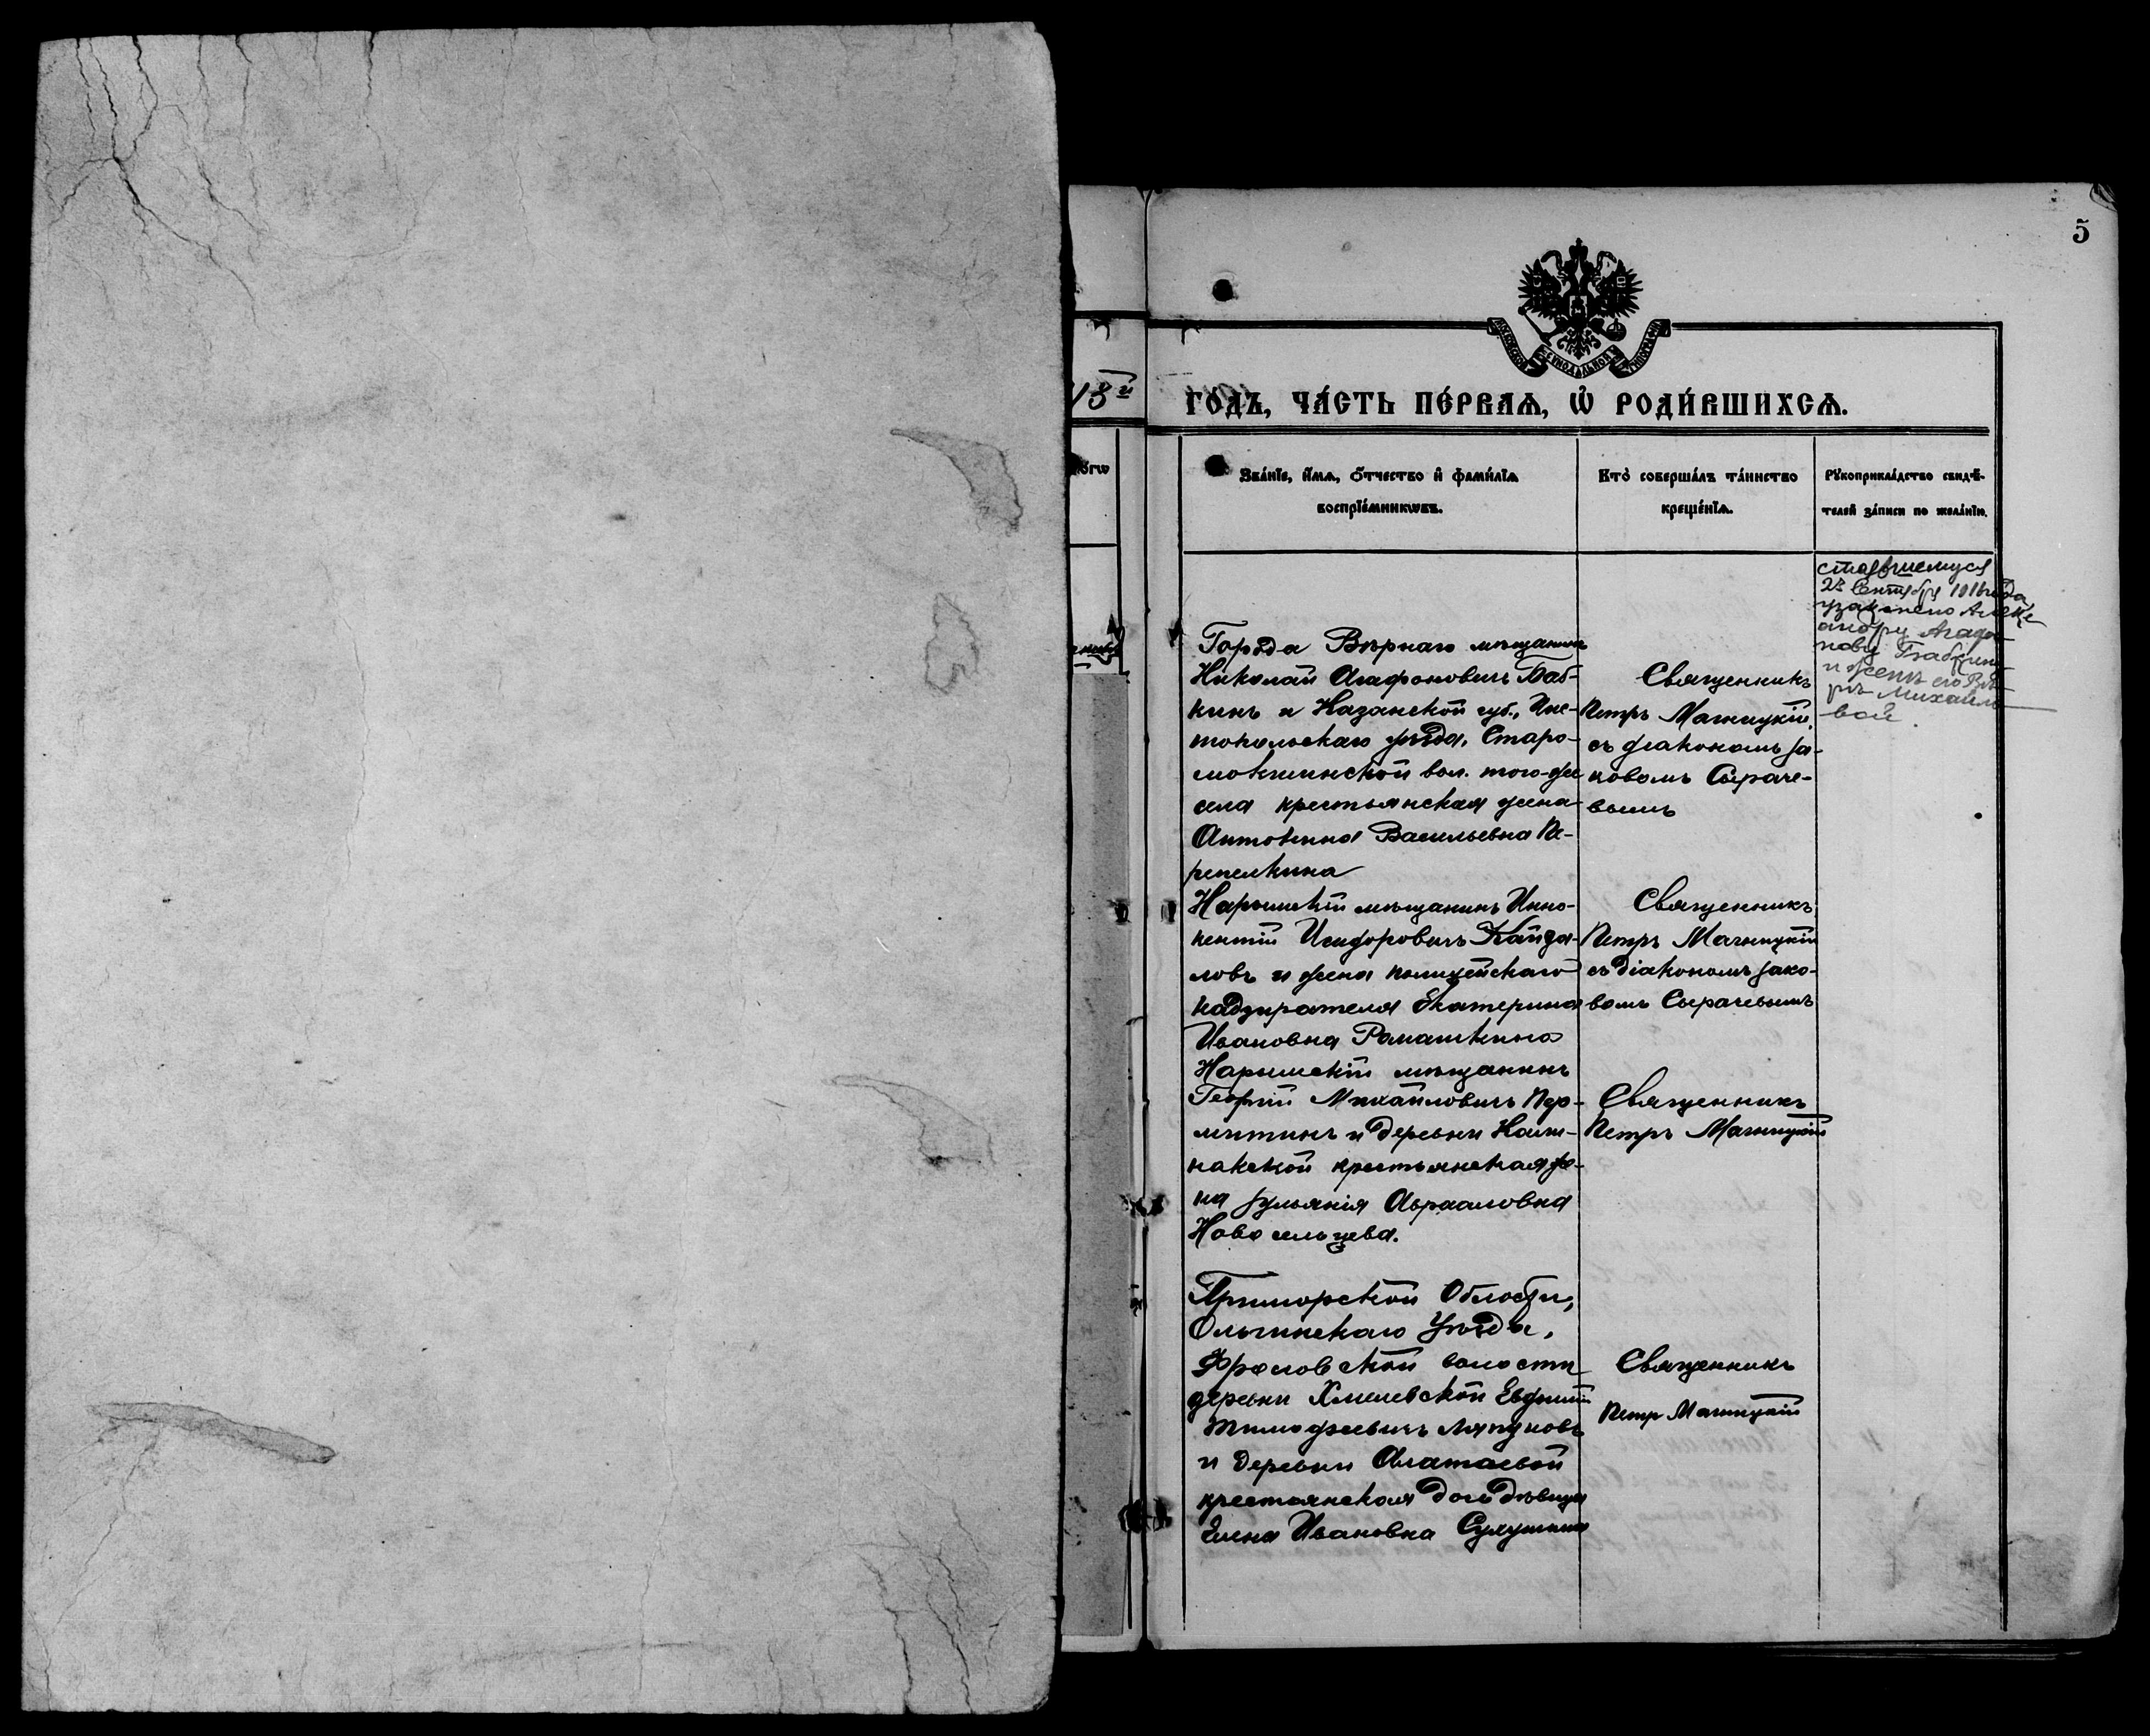 5
МОСКОВСКОЙ СѴНОДАЛЬНОЙ ТИПОГРАФІИ
18й
ГО́ДЪ, ЧА́СТЬ ПЕ́РВАѦ, Ѡ҆ РОДИ́ВШИХСѦ.
Зва́нїе, и҆́мѧ, ѻ҆́тчество и҆ фами́лїѧ
воспрїе́мникѡвъ.
Кто̀ соверша́лъ та́инство
креще́нїѧ.
Рꙋкоприкла́дство свидѣ́-
телей за́писи по жела́нїю.
Города Вѣрнаго мѣщанинъ
Николай Агафоновичъ Баб-
кинъ и Казанской губ., Чис-
топольскаго уѣзда, Старо-
мокшинской вол. того-же
села крестьянская жена
Антонина Васильевна Пе-
репелкина
Священникъ
Петръ Магницкій
съ діакономъ Іа-
ковомъ Сыраче-
вымъ
ставшемуся
Сентября
узаконено Алекс
андру Агафо-
нову Бабкину
и женѣ его Вѣ-
рѣ Михайло-
вой.
Нарымскій мѣщанинъ Инно-
кентій Исидоровичъ Кайда-
ловъ и жена полицейскаго
надзирателя Екатерина
Ивановна Ромашкина
Священникъ
Петръ Магницкій
съ діакономъ Іако-
вомъ Сырачевымъ
Нарымскій мѣщанинъ
Георгій Михайловичъ Пер-
митинъ и деревни
крестьянская же-
на Іуліанія Авраамовна
Новосельцева.
Священникъ
Петръ Магницкій
Приморской Области,
Ольгинскаго Уѣзда,
Фроловской волости
деревни Хмелевской Евфимій
Тимофеевичъ Ляпуновъ
и деревни Алатаевой
крестьянская дочь дѣвица
Елена Ивановна
Священникъ
Петръ Магницкій